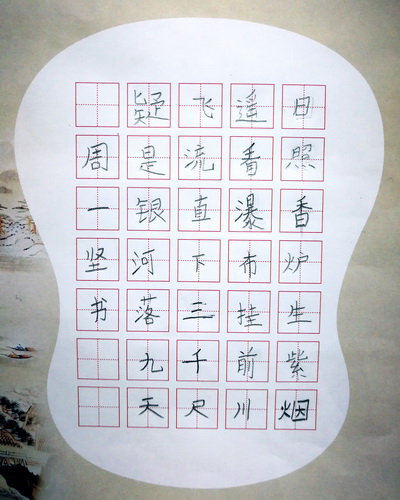 日照香炉生紫烟
遥看瀑布挂前川
飞流直下三千尺
疑是银河落九天
周一坚书